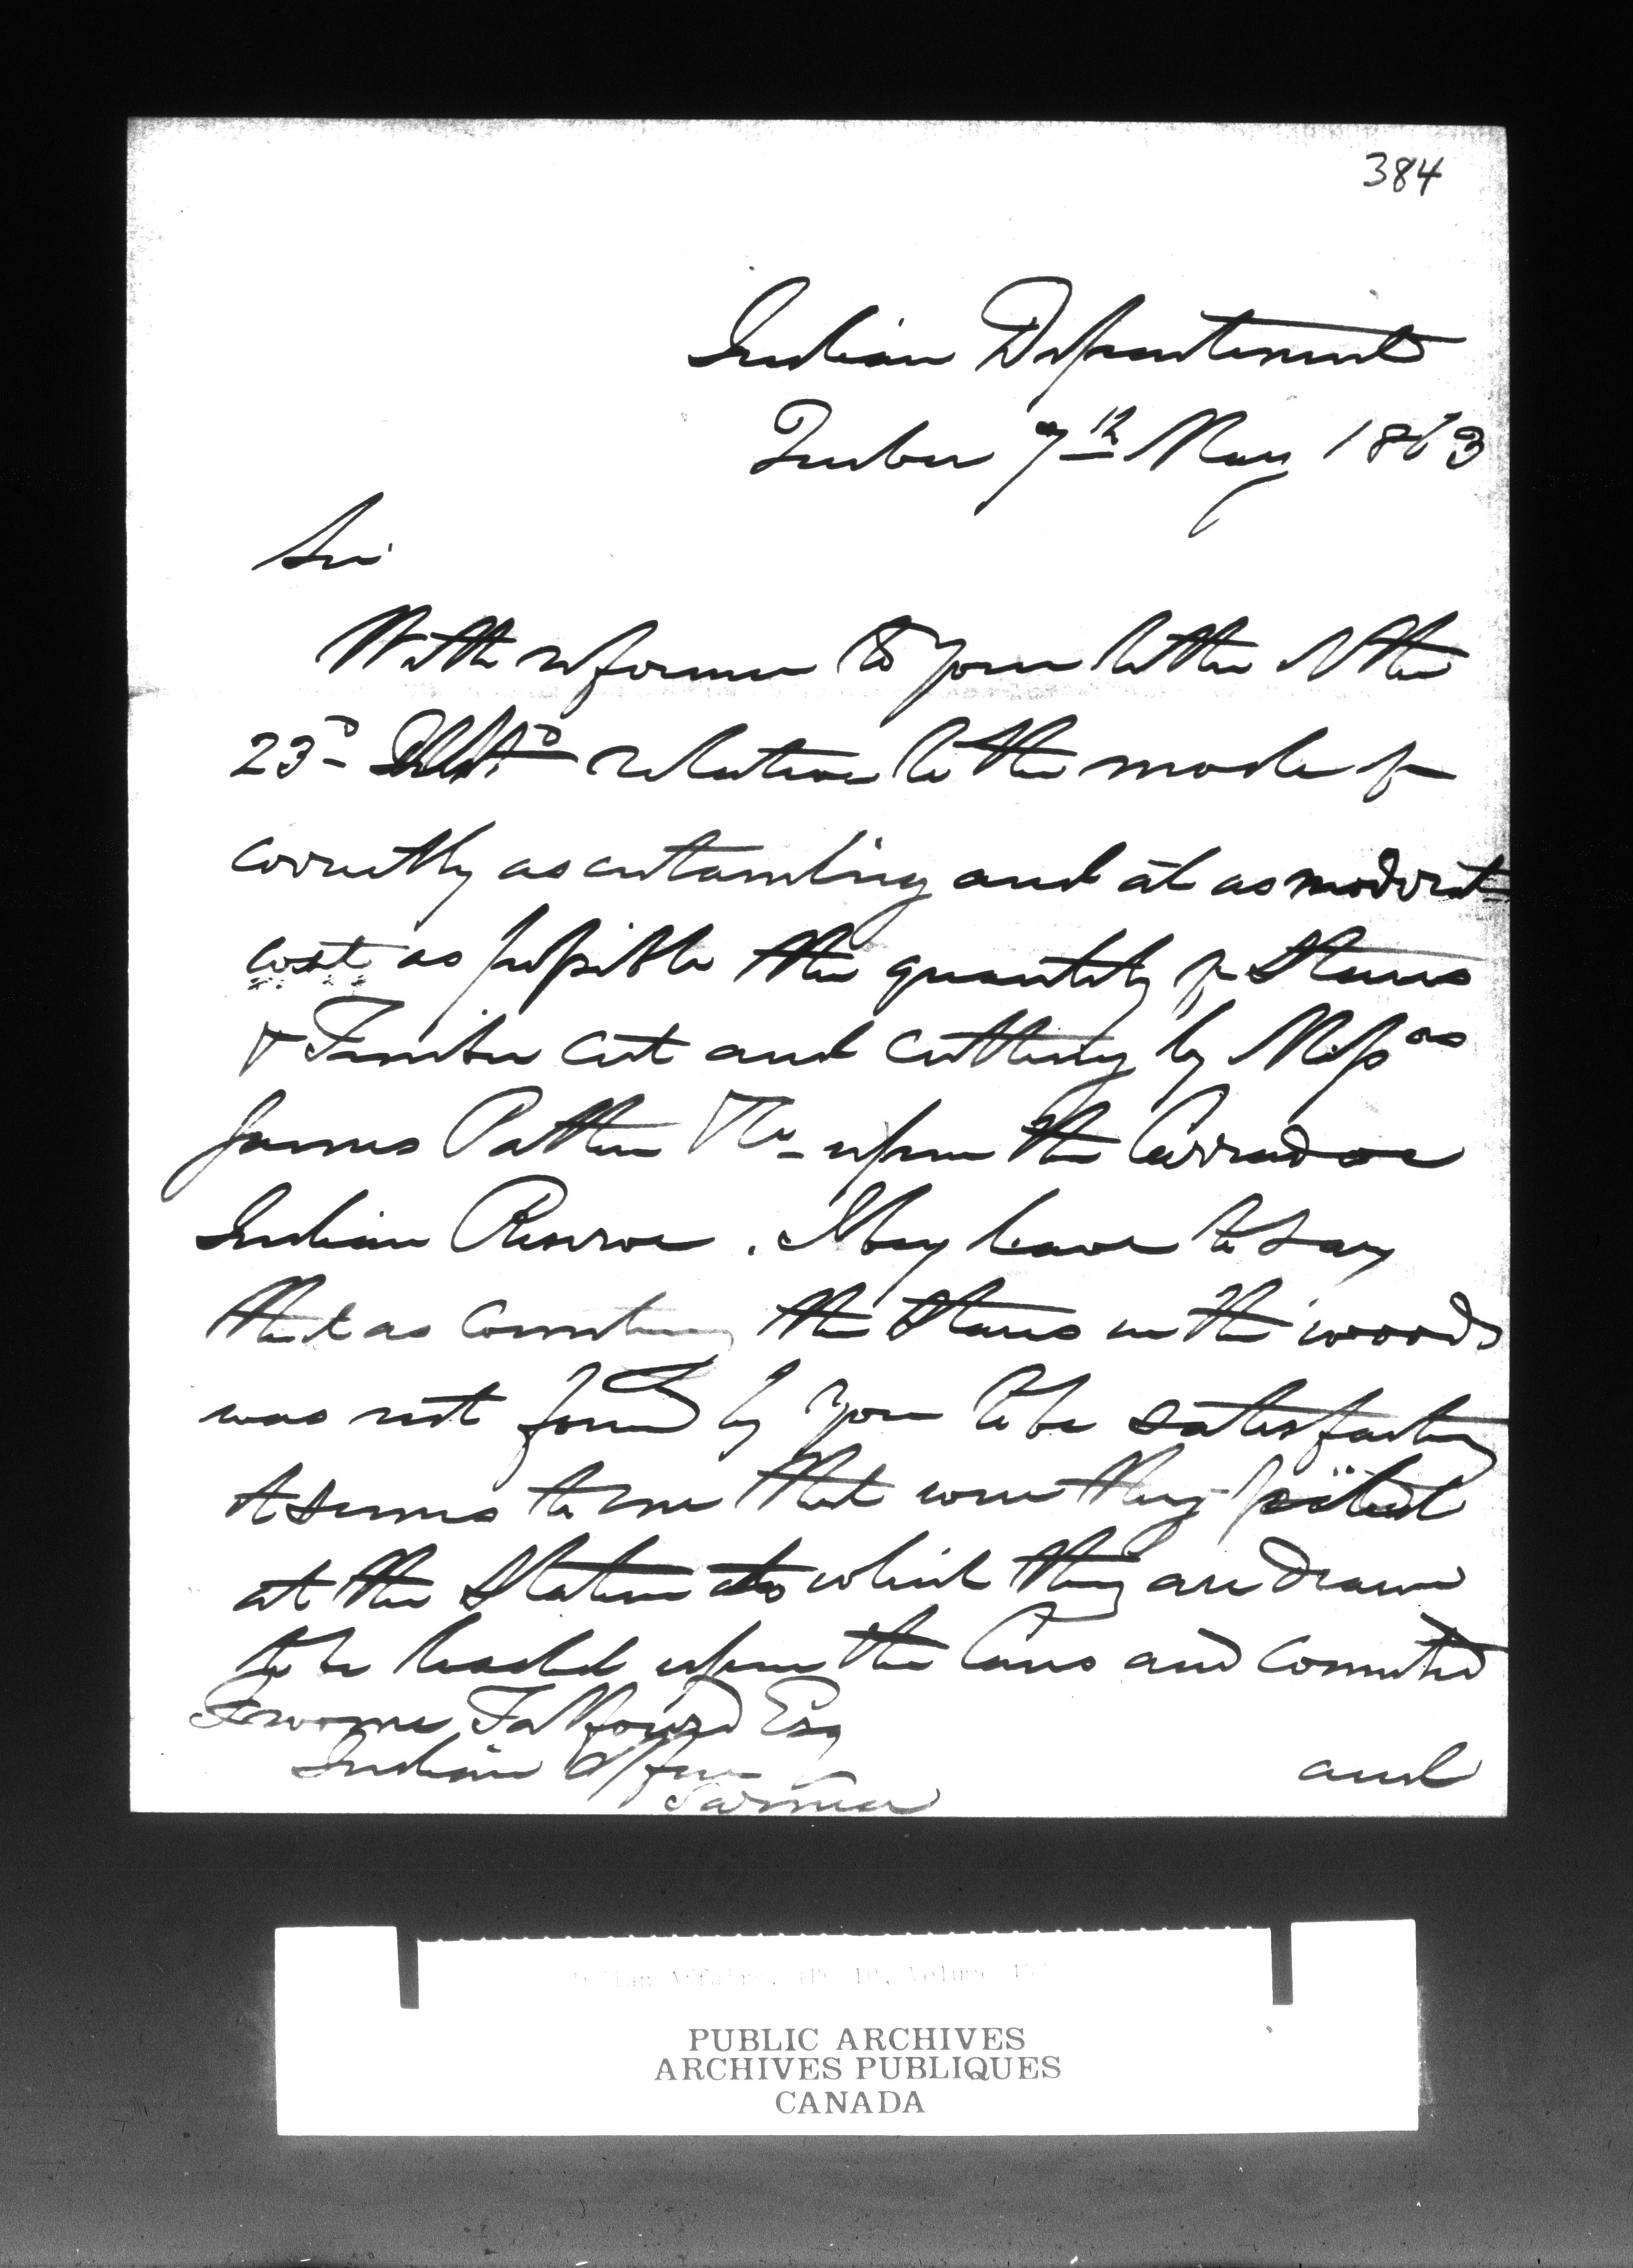 384
Indian Department
Quebec 7th May 1863
Sir
With reference to your letter of the
23d Ulto relative to the mode of
correctly ascertaining and at as moderate
cost as possible the quantity of Staves
& Timber cut and cutting by Messrs
James Patten & Co upon the
Indian Reserve. I beg leave to say
that as counting the Staves in the woods
was not found by you to be satisfactory
it seems to me that were they piled
at the Station to which they are drawn
to be loaded upon the Cars and counted
Froome Talfourd Esq
Indian Office
Sarnia
and
Indian Affairs. (RG 10, Volume
PUBLIC ARCHIVES
ARCHIVES PUBLIQUES
CANADA